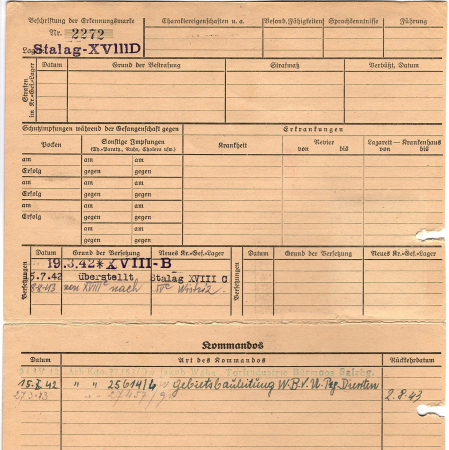 Beschriftung der Erkennungsmarke
Nr. 2272
Lager Stalag-XVIIID
Charaktereigenschaften u. a.
Besond. Fähigkeiten
Sprachkenntnisse
Führung
Strafen im Kr.-Gef.-Lager
Datum
Grund der Bestrafung
Strafmaß
Verbüßt, Datum
Schutzimpfungen während der Gefangenschaft gegen
Erkrankungen
Pocken
Sonstige Impfungen
(Th.-Paraty., Ruhr, Cholera usw.)
Krankheit
Revier
von bis
Lazarett — Krankenhaus
von bis
am am am
Erfolg gegen gegen
am am am
Erfolg gegen gegen
am am am
Erfolg gegen gegen
am am
gegen gegen
Versetzungen
Datum
Grund der Versetzung
Neues Kr.-Gef.-Lager
19.3.42*XVIII-B
5.7.42 überstellt Stalag XVIII C
8.8.43 von XVIIIc nach IVc Wistriz
Versetzungen
Datum
Grund der Versetzung
Neues Kr.-Gef.-Lager
Kommandos
Datum
Art des Kommandos
Rückkehrdatum
Torfindustrie Bürmoos Salzbg.
15.7.42 " " 25614/L Gebietsbauleitung W.B.V. Dienten
27.3.43
2.8.43